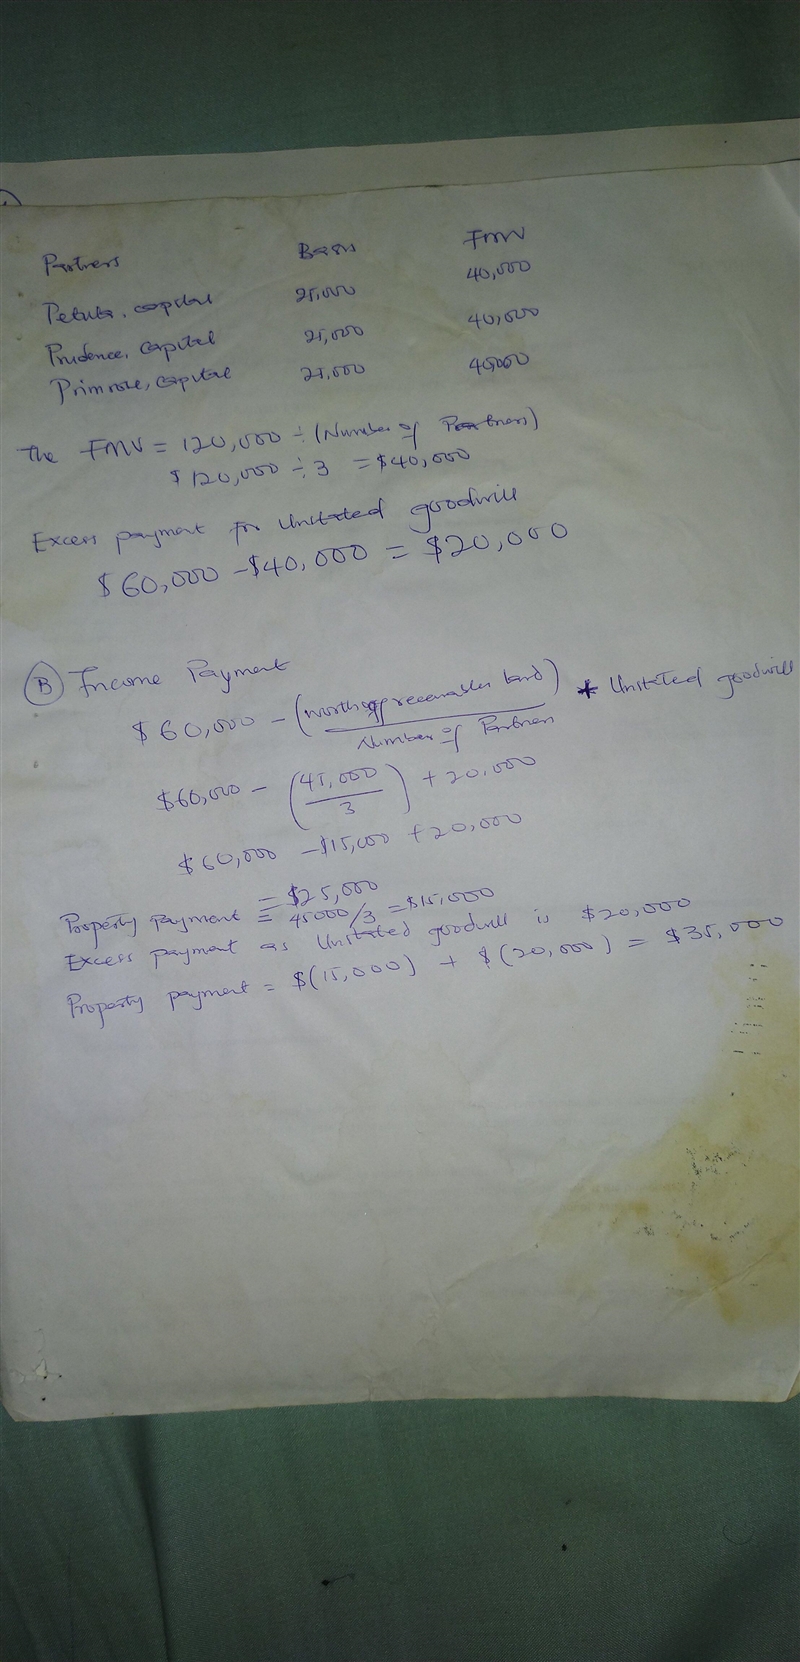 Partners Basis FMV
Petula, capital 25,000 40,000
Prudence, Capital 25,000 40,000
Primrose, capital 25,000 40,000
The FMV = 120,000 ÷ (Number of Partners)
$120,000 ÷ 3 = $40,000
Excess payment for Unstated goodwill
$60,000 - $40,000 = $20,000
(B) Income Payment
$60,000 - (worth of receivables land) / Number of Partners + Unstated goodwill
$60,000 - (45,000 / 3) + 20,000
$60,000 - $15,000 + 20,000
= $25,000
Property payment = 45000/3 = $15,000
Excess payment as Unstated goodwill is $20,000
Property payment = $(15,000) + $(20,000) = $35,000